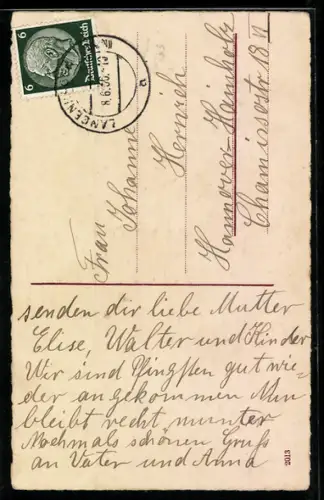 6 Deutsches Reich 6
8.6.36.-19
a
Frau
Johanne
Hernich
Hannover-Hainholz
Chamissostr 18 II
senden dir liebe Mutter
Elise, Walter und Kinder
Wir sind Pfingsten gut wie-
der angekommen Nun
bleibt recht munter
Nochmals schönen Gruß
an Vater und Anna
2013